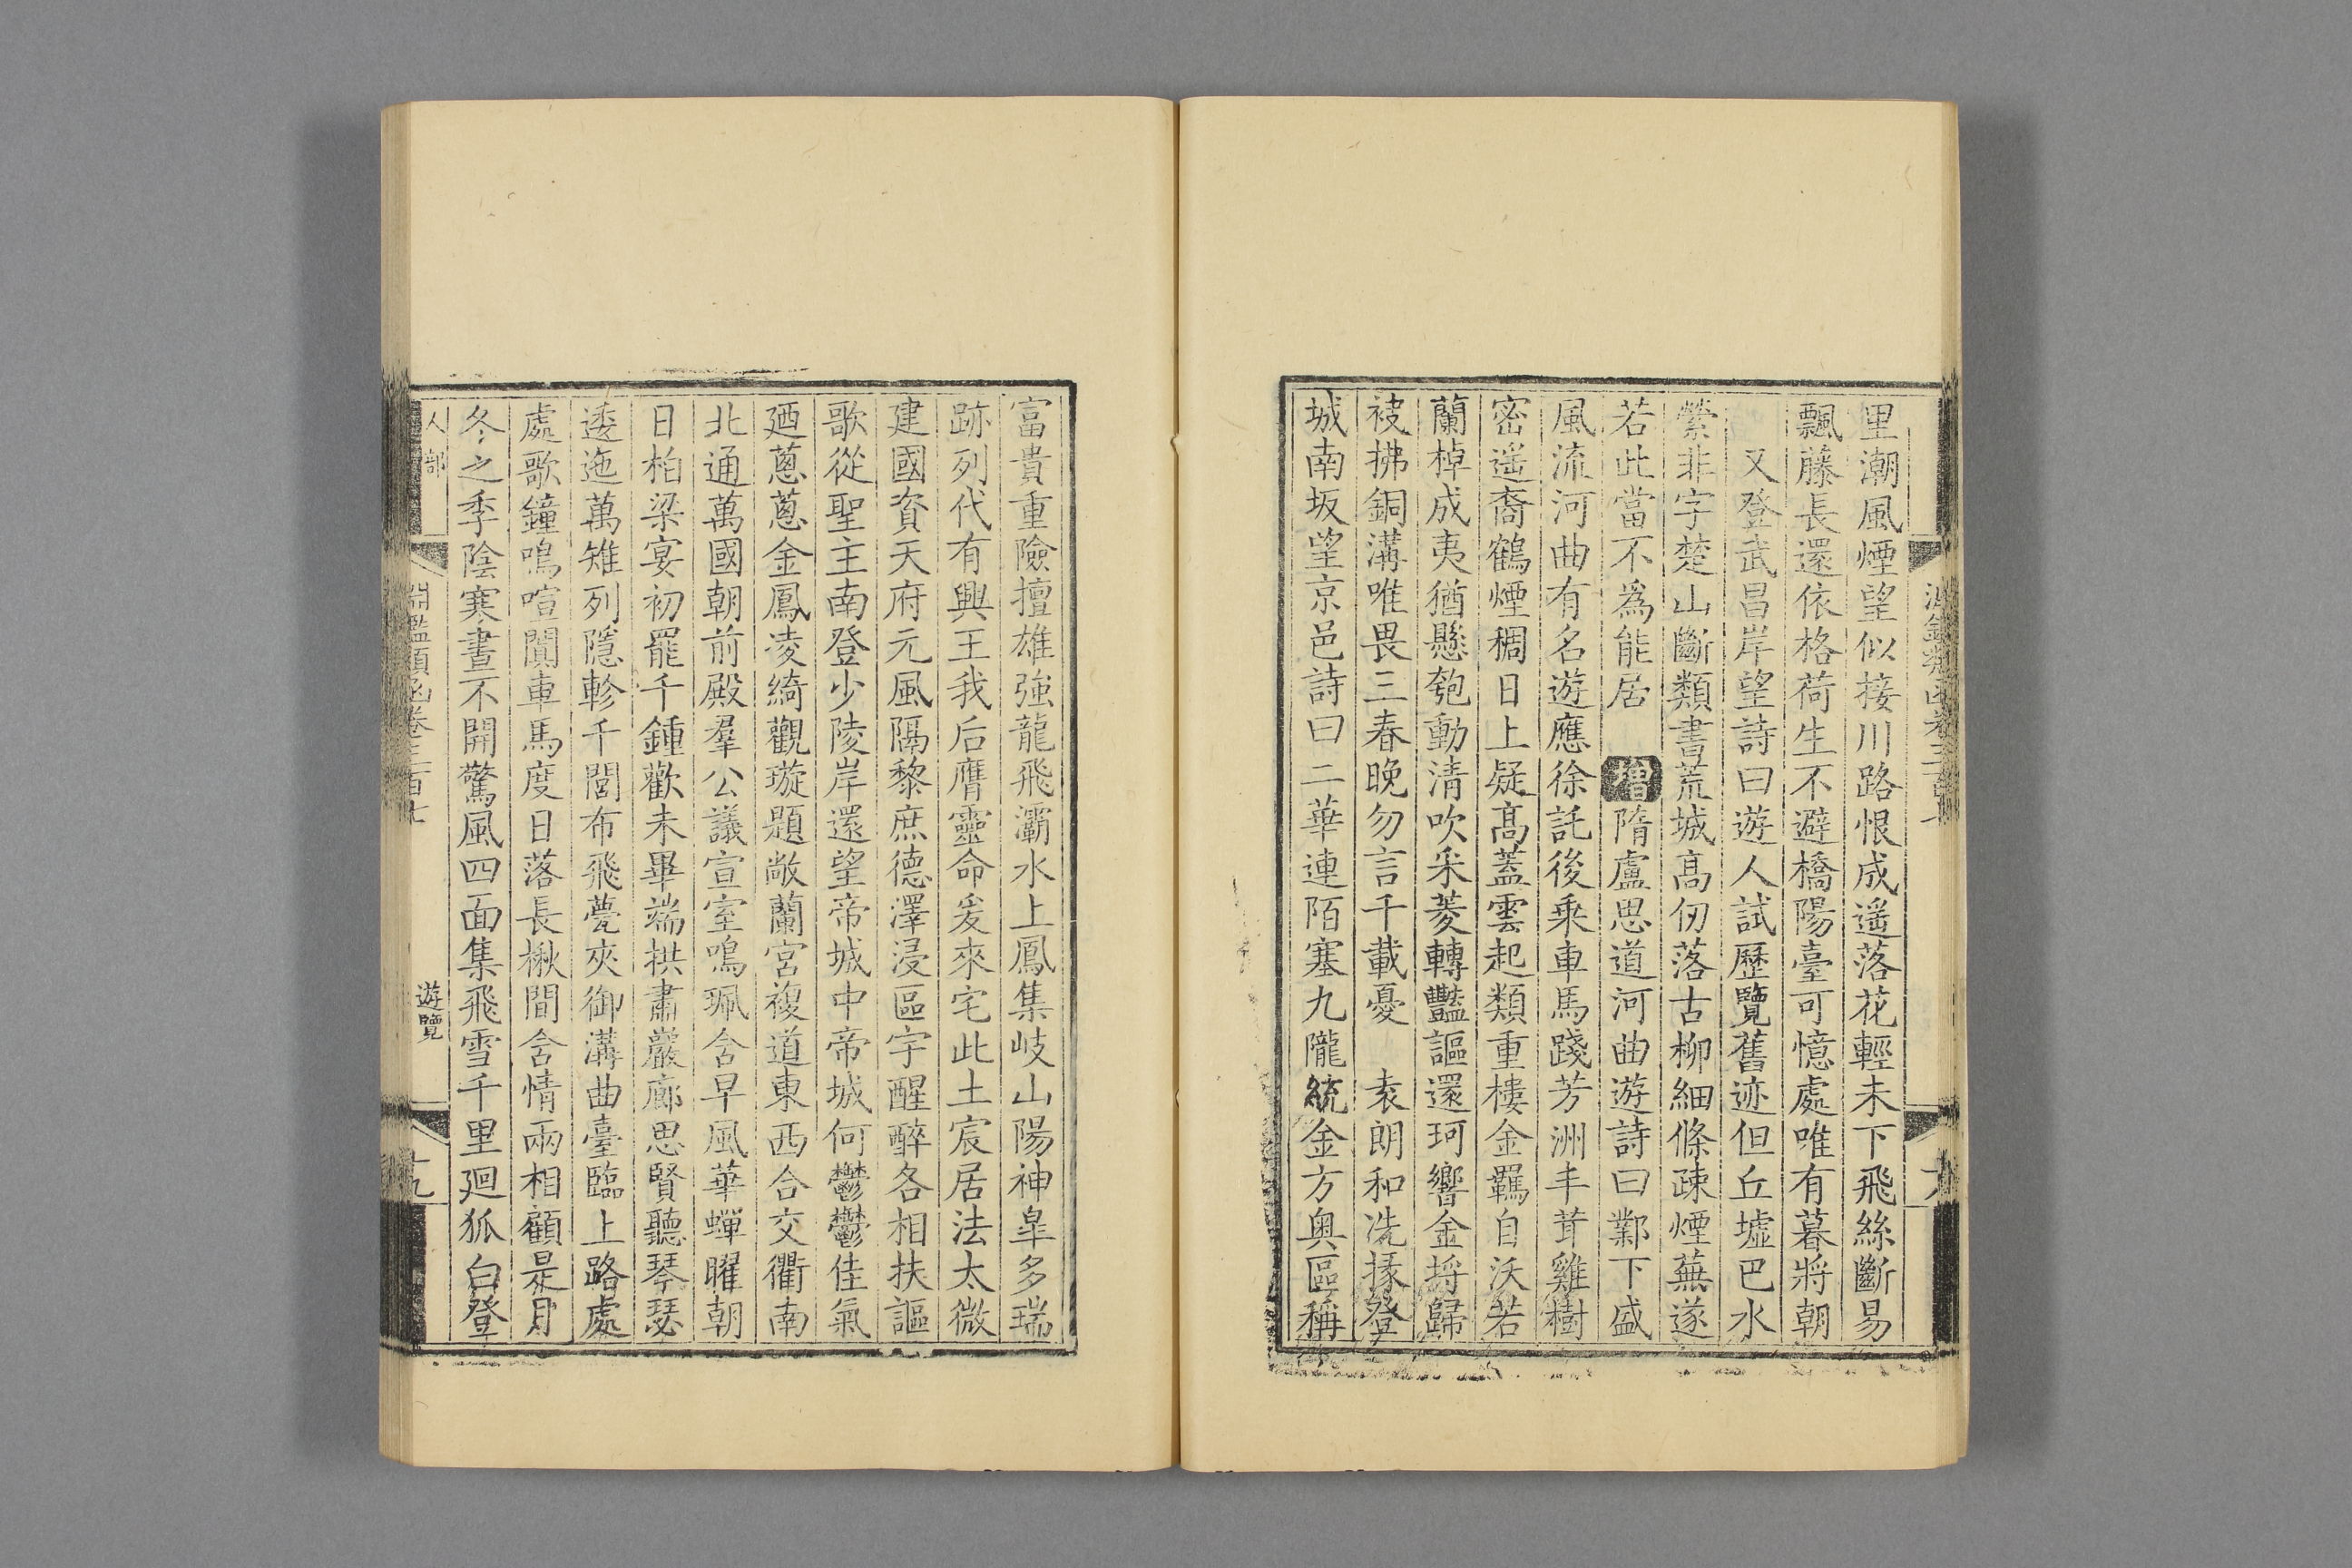 里潮風煙望似接川路恨成遥落花輕未下飛絲斷易
飄藤長還依格荷生不避橋陽臺可憶處唯有暮將朝
又登武昌岸望詩曰遊人試歷覽舊迹但丘墟巴水
縈非字楚山斷類書荒城高仞落古柳細條疎煙蕪遂
若此當不爲能居 增 隋盧思道河曲遊詩曰鄴下盛
風流河曲有名遊應徐託後乗車馬踐芳洲丰茸雞樹
密遥裔鶴煙稠日上疑高蓋雲起類重樓金羈自沃若
蘭棹成夷猶懸匏動清吹采菱轉豔謳還珂響金埒歸
袂拂銅溝唯畏三春晚勿言千載憂 袁朗和洗掾登
城南坂望京邑詩曰二華連陌塞九隴統金方奥區稱
富貴重險擅雄強龍飛灞水上鳳集岐山陽神皐多瑞
跡列代有興王我后膺靈命爰來宅此土宸居法太微
建國資天府元風隔黎庶德澤浸區宇醒醉各相扶謳
歌從聖主南登少陵岸還望帝城中帝城何鬱鬱佳氣
廼蔥蔥金鳳凌綺觀璇題敞蘭宮複道東西合交衢南
北通萬國朝前殿羣公議宣室鳴珮含早風華蟬曜朝
日柏梁宴初罷千鍾歡未畢端拱肅巖廊思賢聽琴瑟
逶迤萬雉列隱軫千閭布飛甍夾御溝曲臺臨上路處
處歌鐘鳴喧闐車馬度日落長楸間含情兩相顧是月
冬之季陰寒晝不開驚風四面集飛雪千里廻狐白登
人部
淵鑑類函卷三百七
遊覽
十九